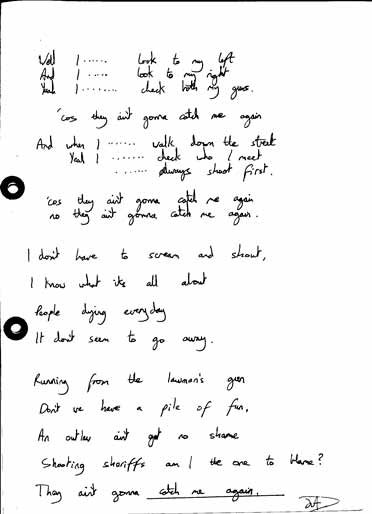 Well I ...... look to my left
And I ..... look to my right
Yeah I ........ check both my guns.
'cos they ain't gonna catch me again
And when I ...... walk down the street
Yeah I ....... check who I meet
...... always shoot first.
'cos they ain't gonna catch me again
no they ain't gonna catch me again.
I don't have to scream and shout,
I know what it's all about
People dying everyday
It don't seem to go away.
Running from the lawman's gun
Don't we have a pile of fun,
An outlaw ain't got no shame
Shooting sheriffs am I the one to blame?
They ain't gonna catch me again.